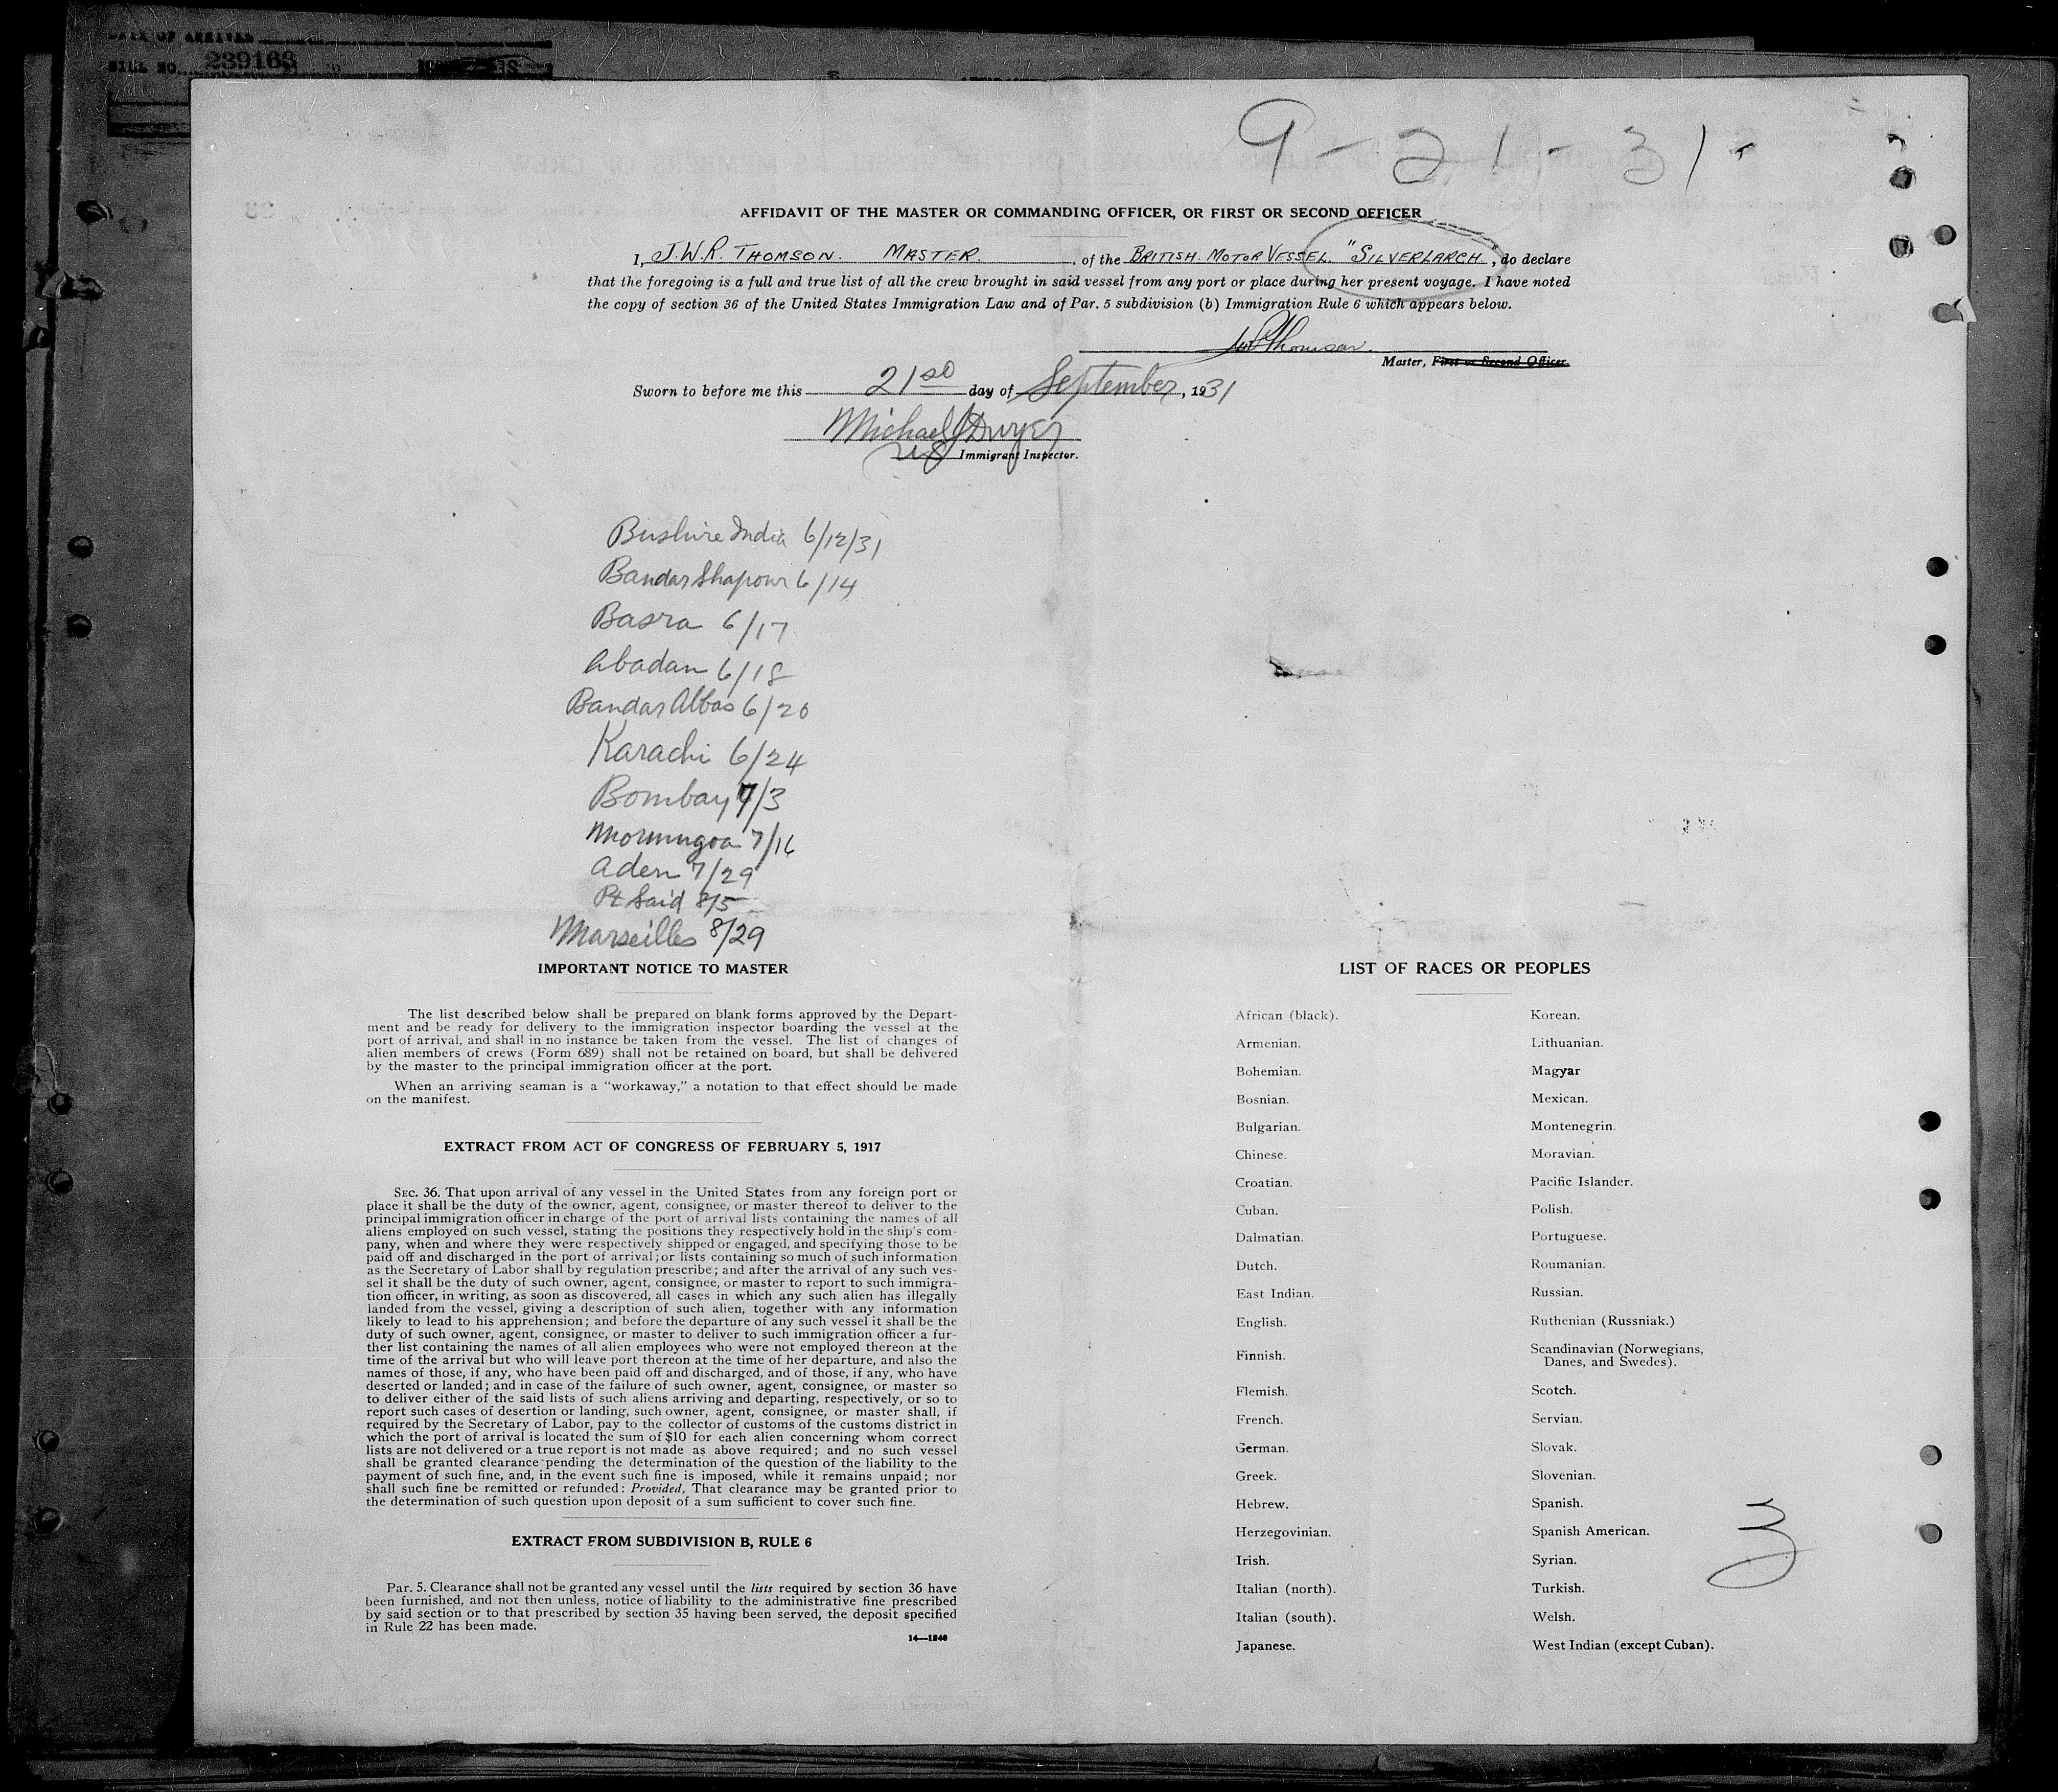 DATE OF ARRIVAL
BILL NO. 239163
9-21-31
AFFIDAVIT OF THE MASTER OR COMMANDING OFFICER, OR FIRST OR SECOND OFFICER
I, J.W.R. THOMSON. MASTER. , of the BRITISH MOTOR VESSEL "SILVERLARCH", do declare
that the foregoing is a full and true list of all the crew brought in said vessel from any port or place during her present voyage. I have noted
the copy of section 36 of the United States Immigration Law and of Par. 5 subdivision (b) Immigration Rule 6 which appears below.
JWRThomson.
Master, First or Second Officer.
Sworn to before me this 21st day of September, 1931
Michael J Dwyer
US Immigrant Inspector.
Bushire India 6/12/31
Bandar Shapour 6/14
Basra 6/17
Abadan 6/18
Bandar Abbas 6/20
Karachi 6/24
Bombay 7/3
Mormugoa 7/16
Aden 7/29
Pt Said 8/5
Marseilles 8/29
IMPORTANT NOTICE TO MASTER
The list described below shall be prepared on blank forms approved by the Depart-
ment and be ready for delivery to the immigration inspector boarding the vessel at the
port of arrival, and shall in no instance be taken from the vessel. The list of changes of
alien members of crews (Form 689) shall not be retained on board, but shall be delivered
by the master to the principal immigration officer at the port.
When an arriving seaman is a "workaway," a notation to that effect should be made
on the manifest.
EXTRACT FROM ACT OF CONGRESS OF FEBRUARY 5, 1917
SEC. 36. That upon arrival of any vessel in the United States from any foreign port or
place it shall be the duty of the owner, agent, consignee, or master thereof to deliver to the
principal immigration officer in charge of the port of arrival lists containing the names of all
aliens employed on such vessel, stating the positions they respectively hold in the ship's com-
pany, when and where they were respectively shipped or engaged, and specifying those to be
paid off and discharged in the port of arrival; or lists containing so much of such information
as the Secretary of Labor shall by regulation prescribe; and after the arrival of any such ves-
sel it shall be the duty of such owner, agent, consignee, or master to report to such immigra-
tion officer, in writing, as soon as discovered, all cases in which any such alien has illegally
landed from the vessel, giving a description of such alien, together with any information
likely to lead to his apprehension; and before the departure of any such vessel it shall be the
duty of such owner, agent, consignee, or master to deliver to such immigration officer a fur-
ther list containing the names of all alien employees who were not employed thereon at the
time of the arrival but who will leave port thereon at the time of her departure, and also the
names of those, if any, who have been paid off and discharged, and of those, if any, who have
deserted or landed; and in case of the failure of such owner, agent, consignee, or master so
to deliver either of the said lists of such aliens arriving and departing, respectively, or so to
report such cases of desertion or landing, such owner, agent, consignee, or master shall, if
required by the Secretary of Labor, pay to the collector of customs of the customs district in
which the port of arrival is located the sum of $10 for each alien concerning whom correct
lists are not delivered or a true report is not made as above required; and no such vessel
shall be granted clearance pending the determination of the question of the liability to the
payment of such fine, and, in the event such fine is imposed, while it remains unpaid; nor
shall such fine be remitted or refunded: Provided, That clearance may be granted prior to
the determination of such question upon deposit of a sum sufficient to cover such fine.
EXTRACT FROM SUBDIVISION B, RULE 6
Par. 5. Clearance shall not be granted any vessel until the lists required by section 36 have
been furnished, and not then unless, notice of liability to the administrative fine prescribed
by said section or to that prescribed by section 35 having been served, the deposit specified
in Rule 22 has been made.
14—1240
LIST OF RACES OR PEOPLES
African (black).
Armenian.
Bohemian.
Bosnian.
Bulgarian.
Chinese.
Croatian.
Cuban.
Dalmatian.
Dutch.
East Indian.
English.
Finnish.
Flemish.
French.
German.
Greek.
Hebrew.
Herzegovinian.
Irish.
Italian (north).
Italian (south).
Japanese.
Korean.
Lithuanian.
Magyar
Mexican.
Montenegrin.
Moravian.
Pacific Islander.
Polish.
Portuguese.
Roumanian.
Russian.
Ruthenian (Russniak.)
Scandinavian (Norwegians,
Danes, and Swedes).
Scotch.
Servian.
Slovak.
Slovenian.
Spanish.
Spanish American.
Syrian.
Turkish.
Welsh.
West Indian (except Cuban).